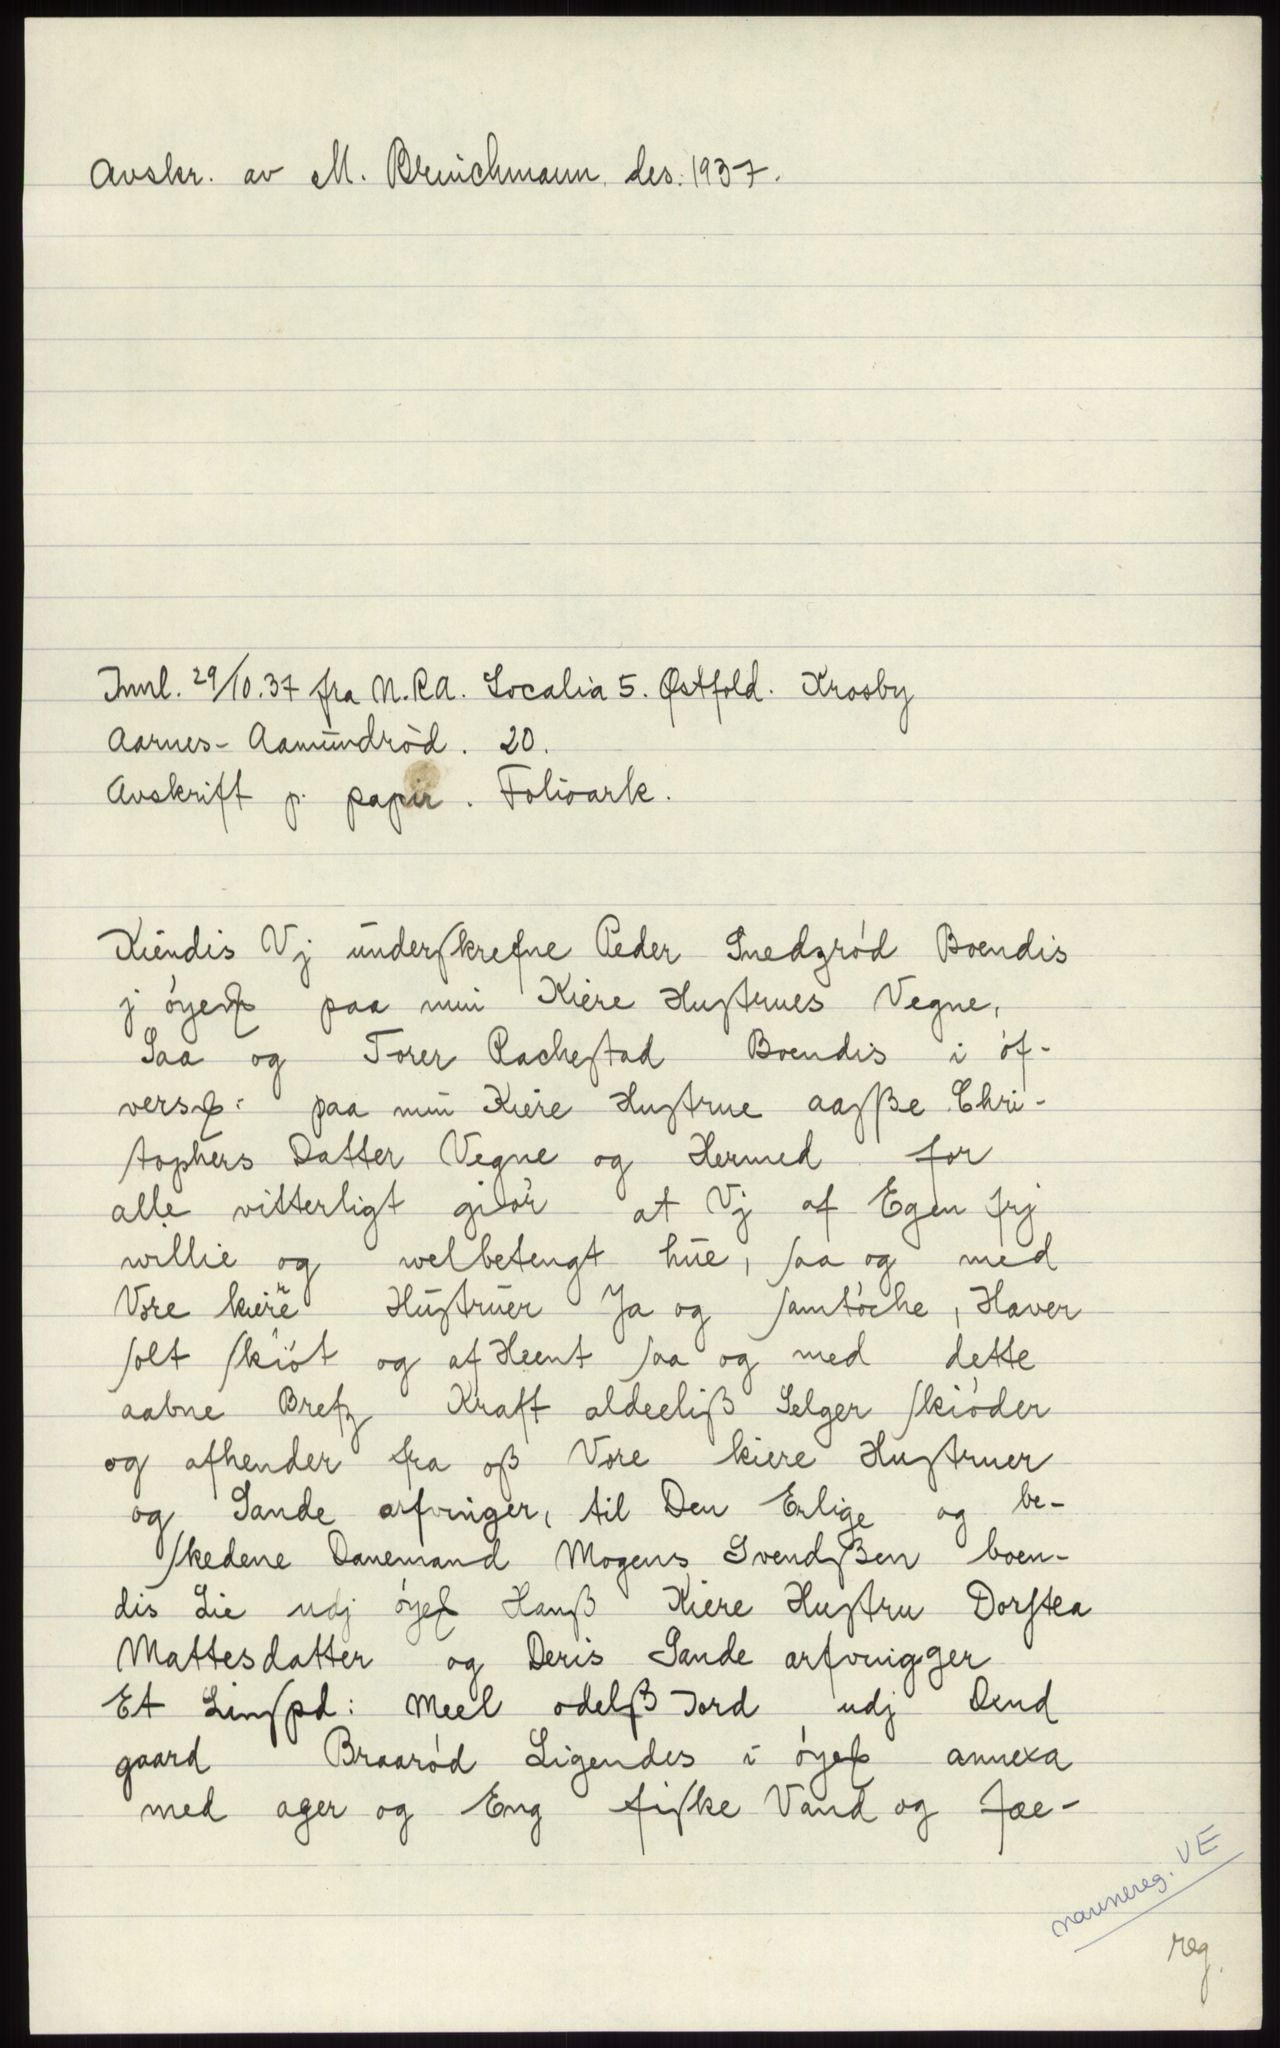 Avskr. av M. Brinchmann. des. 1937.
Innl. 29/10.37 fra N.R.A. Localia 5. Østfold. Krosby
Aarnes - Aamundrød. 20.
Avskrift p. papir. Folioark.
Kiendis Vj underskrefne Peder Snedzrød Boendis
j óyesß paa min Kiere Hustrues Vegne,
Saa og Torer Rachestad Boendis i óf-
versß: paa min Kiere Hustrue aasße Chri-
stophers Datter Vegne og Hermed for
alle vitterligt giór at Vj af Egen frj
willie og welbetengt hue, saa og med
Vore kiere Hustruer Ja og samtóche, Haver
solt skiót og af Heent saa og med dette
aabne Brefz Kraft aldeeliß Selger skióder
og afhender fra oß Vore kiere Hustruer
og Sande arfvinger, til Den Erlige og be-
skedene Danemand Mogens Svendßen boen-
dis Lie udj óyeß Hanß Kiere Hustru Dorstea
Mattesdatter og Deris Sande arfvingger
Et Linspd: Meel odelß Jord udj Dend
gaard Braaród Ligendes i óyeß annexa
med ager og Eng fiske Vand og fæ-
navnereg. VE
reg.